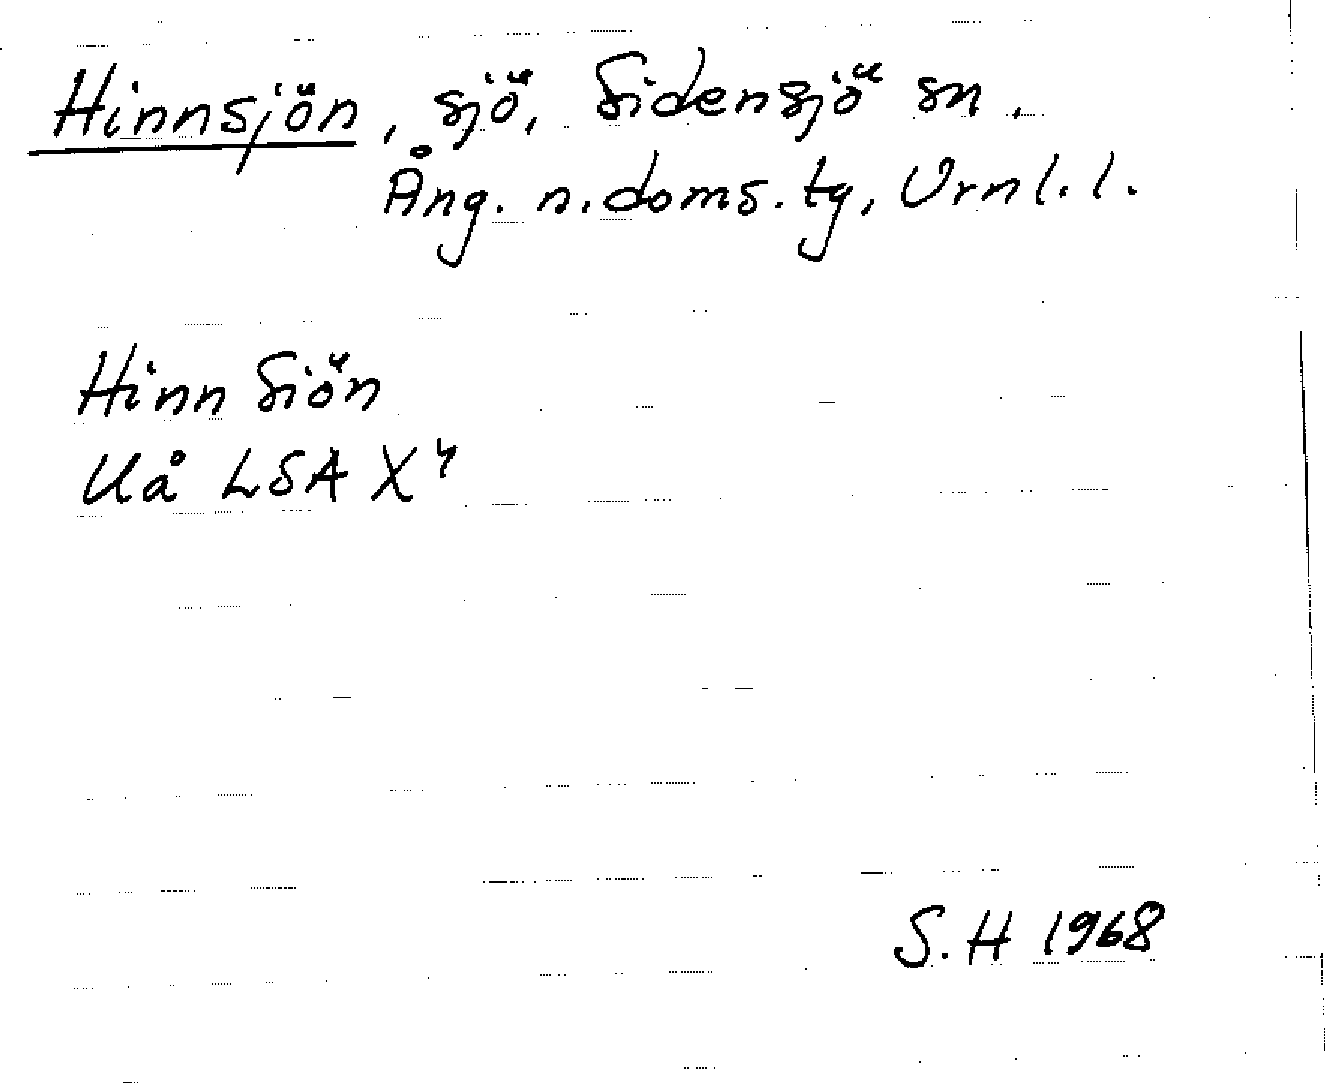 Hinnsjön, sjö, Sidensjö sn.
Ång. n. doms. tg, Vrnl. l.
Hinn Siön
Uå LSA X4
S. H 1968